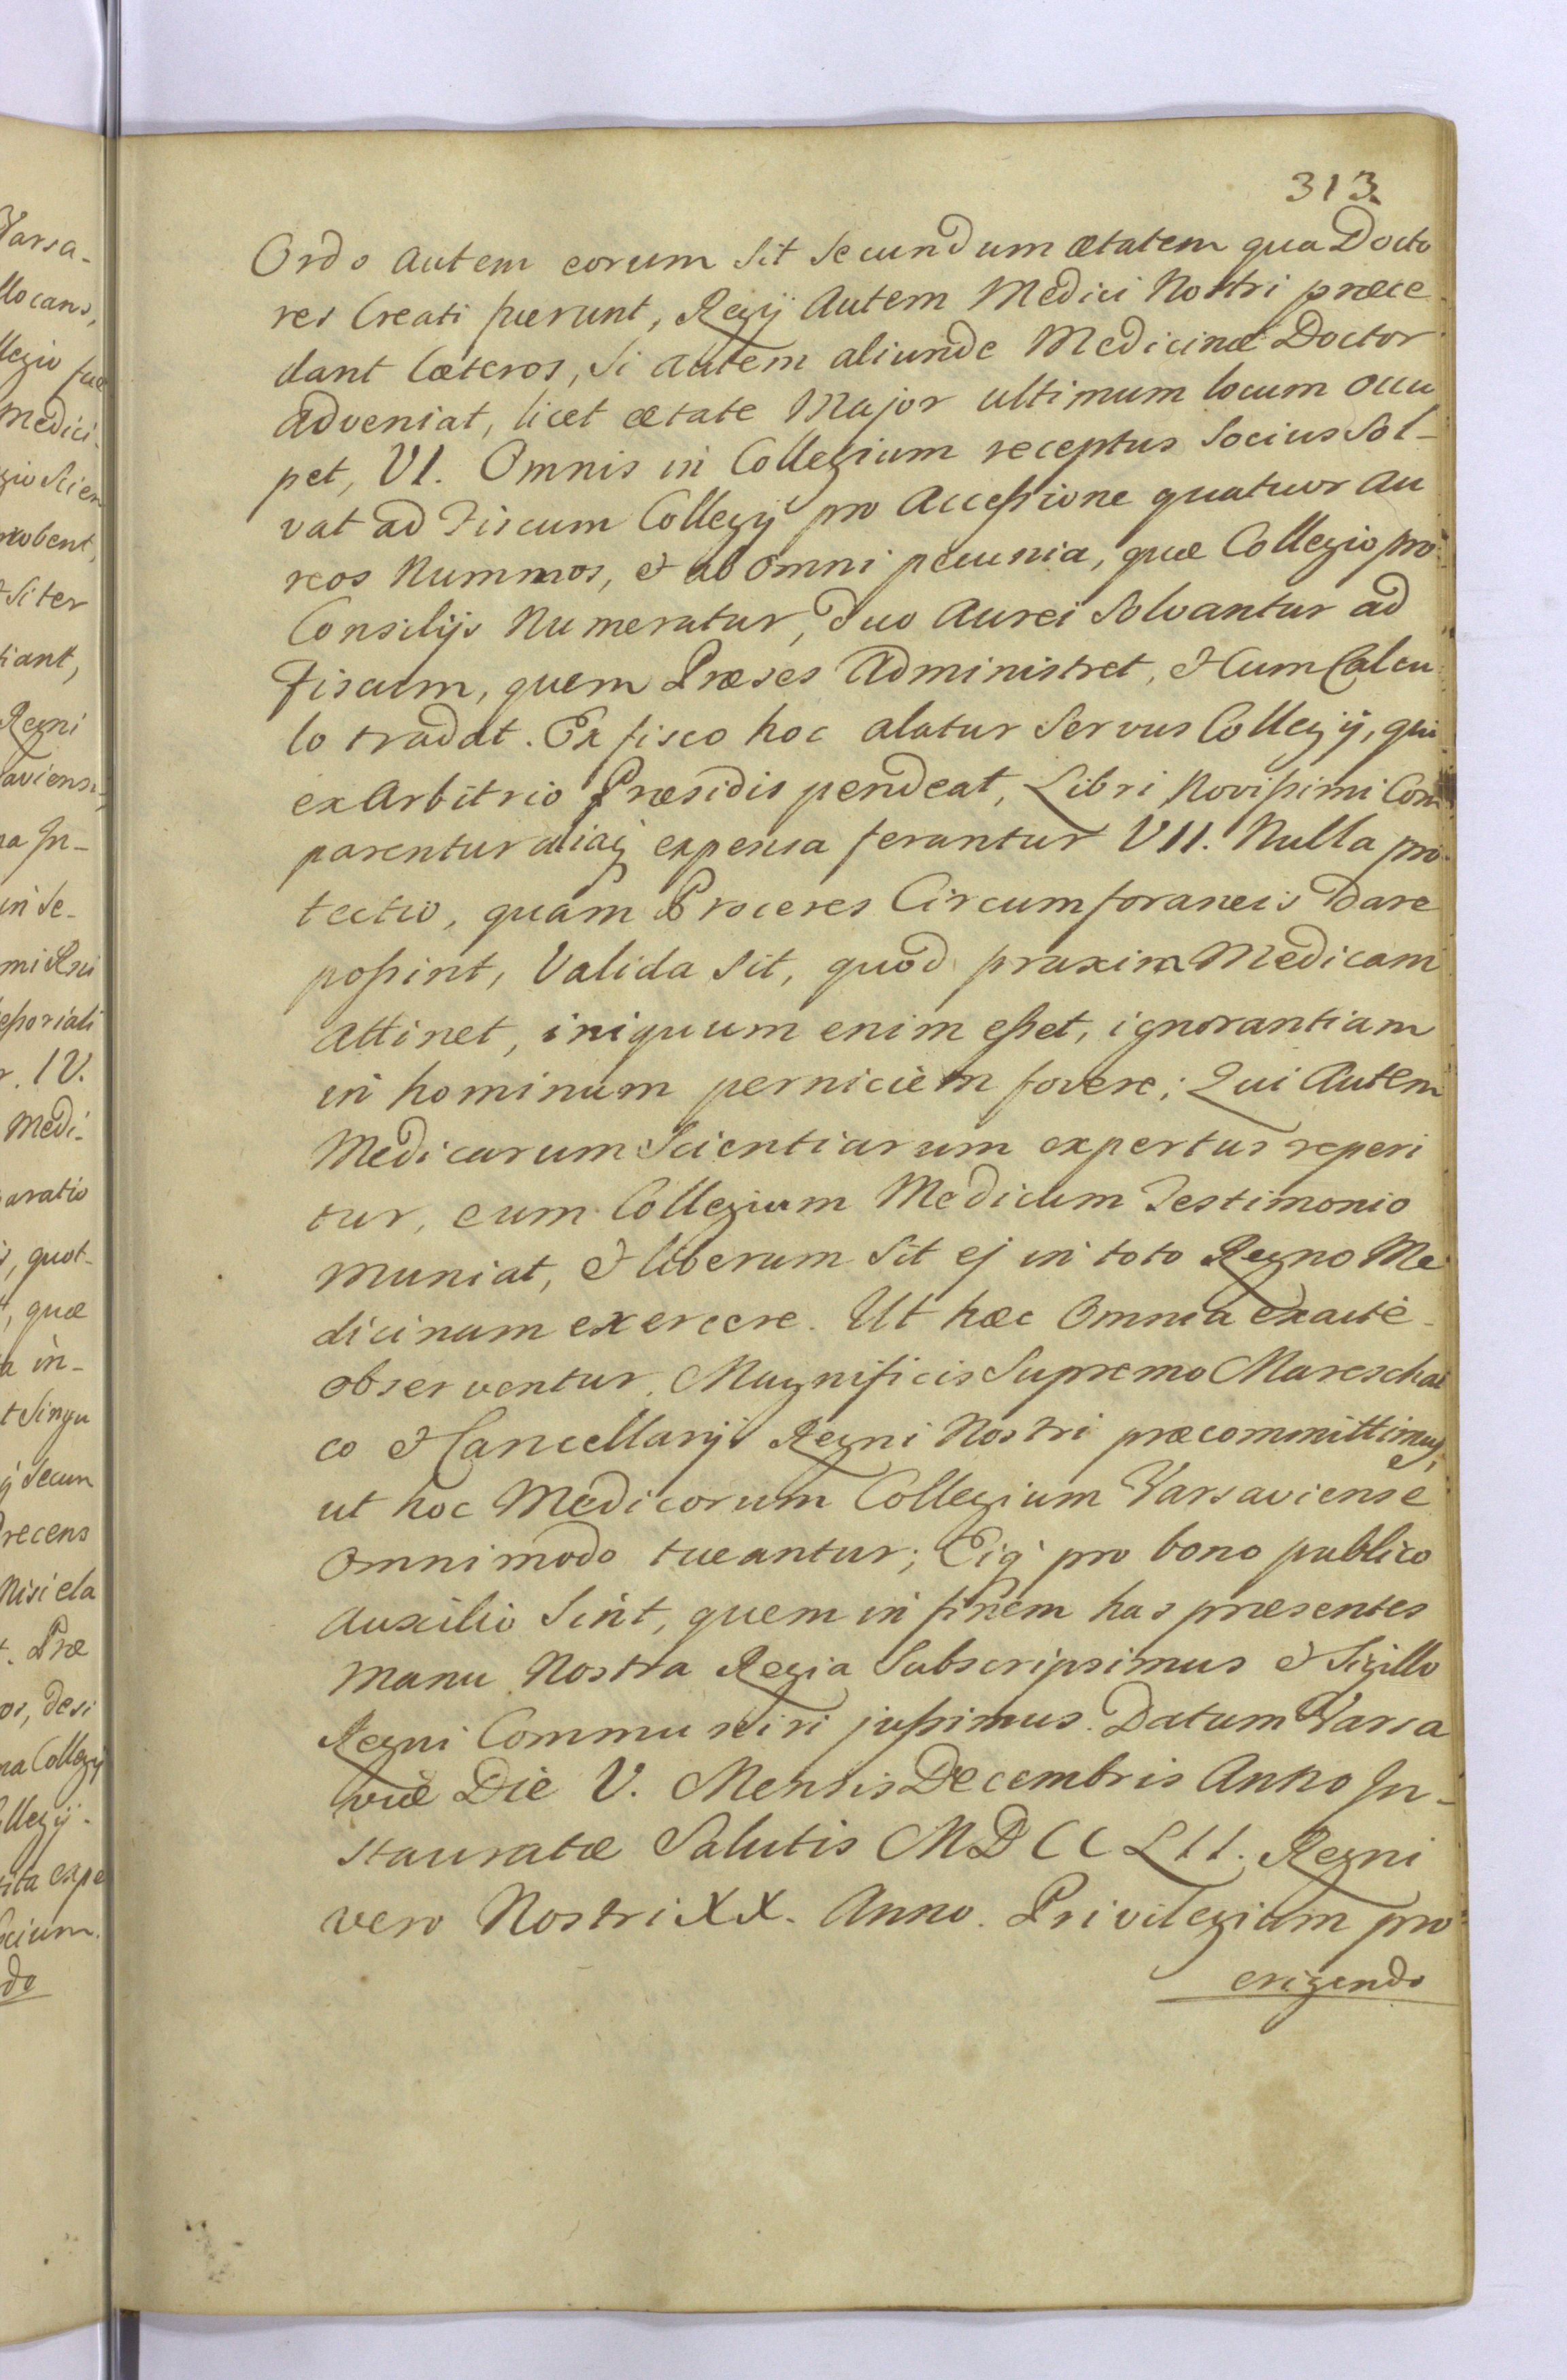 313.
Ordo autem eorum sit secundum ætatem qua Docto
res Creati fuerunt, Regij autem Medici Nostri præce
dant Cæteros, si autem aliunde Medicinæ Doctor
adveniat, licet ætate Major ultimum locum occu
pet, VI. Omnis in Collegium receptus Socius Sol-
vat ad Fiscum Collegij pro Accessione quatuor au
reos Nummos, & ab omni pecunia, quæ Collegio pro
Consilijs Numeratur, duo Aurei Solvantur ad
Fiscum, quem Præses Administret, & Cum Calcu
lo tradat. Ex fisco hoc alatur Servus Collegij, qui
ex Arbitrio Præsidis pendeat, Libri Novissimi Com
parentur aliaq expensa ferantur VII. Nulla pro
tectio, quam Proceres Circumforaneis Dare
possint, Valida sit, quod praxim Medicam
attinet, iniquum enim esset, ignorantiam
in hominum perniciem fovere; Qui Autem
Medicarum Scientiarum expertus reperi
tur, eum Collegium Medicum Testimonio
muniat, & liberum sit ej in toto Regno Me
dicinam exercere. Ut hæc Omnia exactè
observentur, Magnificis Supremo Mareschal
co & Cancellarijs Regni Nostri præcommittimus,
ut hoc Medicorum Collegium Varsaviense
Omnimodo tueantur; Eiq pro bono publico
Auxilio Sint, quem in finem has præsentes
manu Nostra Regia Subscripsimus & Sigillo
Regni Communiri jussimus. Datum Varsa
viæ Die V. Mensis Decembris Anno In-
stauratæ Salutis MDCCLII. Regni
vero Nostri XX. Anno. Privilegium pro
erigendo
Varsa-
llocans,
llegio fue
Medici-
gio Scien
robent,
& Siter
tiant,
Regni
aviensi,
na In-
in se-
essoriali
r. IV.
Medi-
aratio
s, quot-
t, quæ
a in-
t Singu
ij Secun
recens
Nisi ela
t. Præ
os, desi
na Collegij
ollegij.
sita expe
ocium.
do